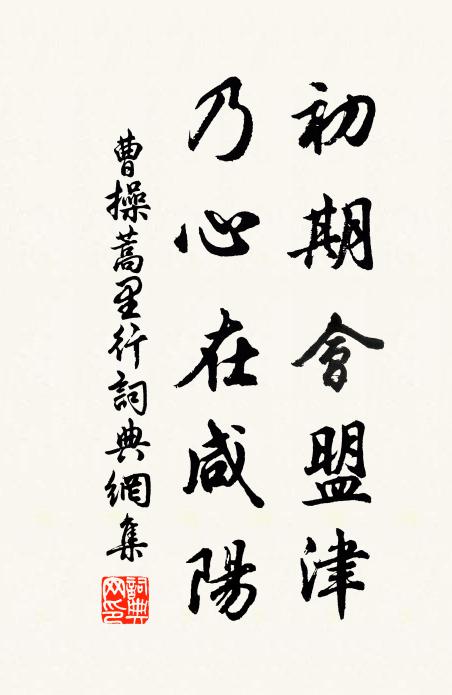 初期會盟津
乃心在咸陽
曹操蒿里行詞典網集
詞典網印